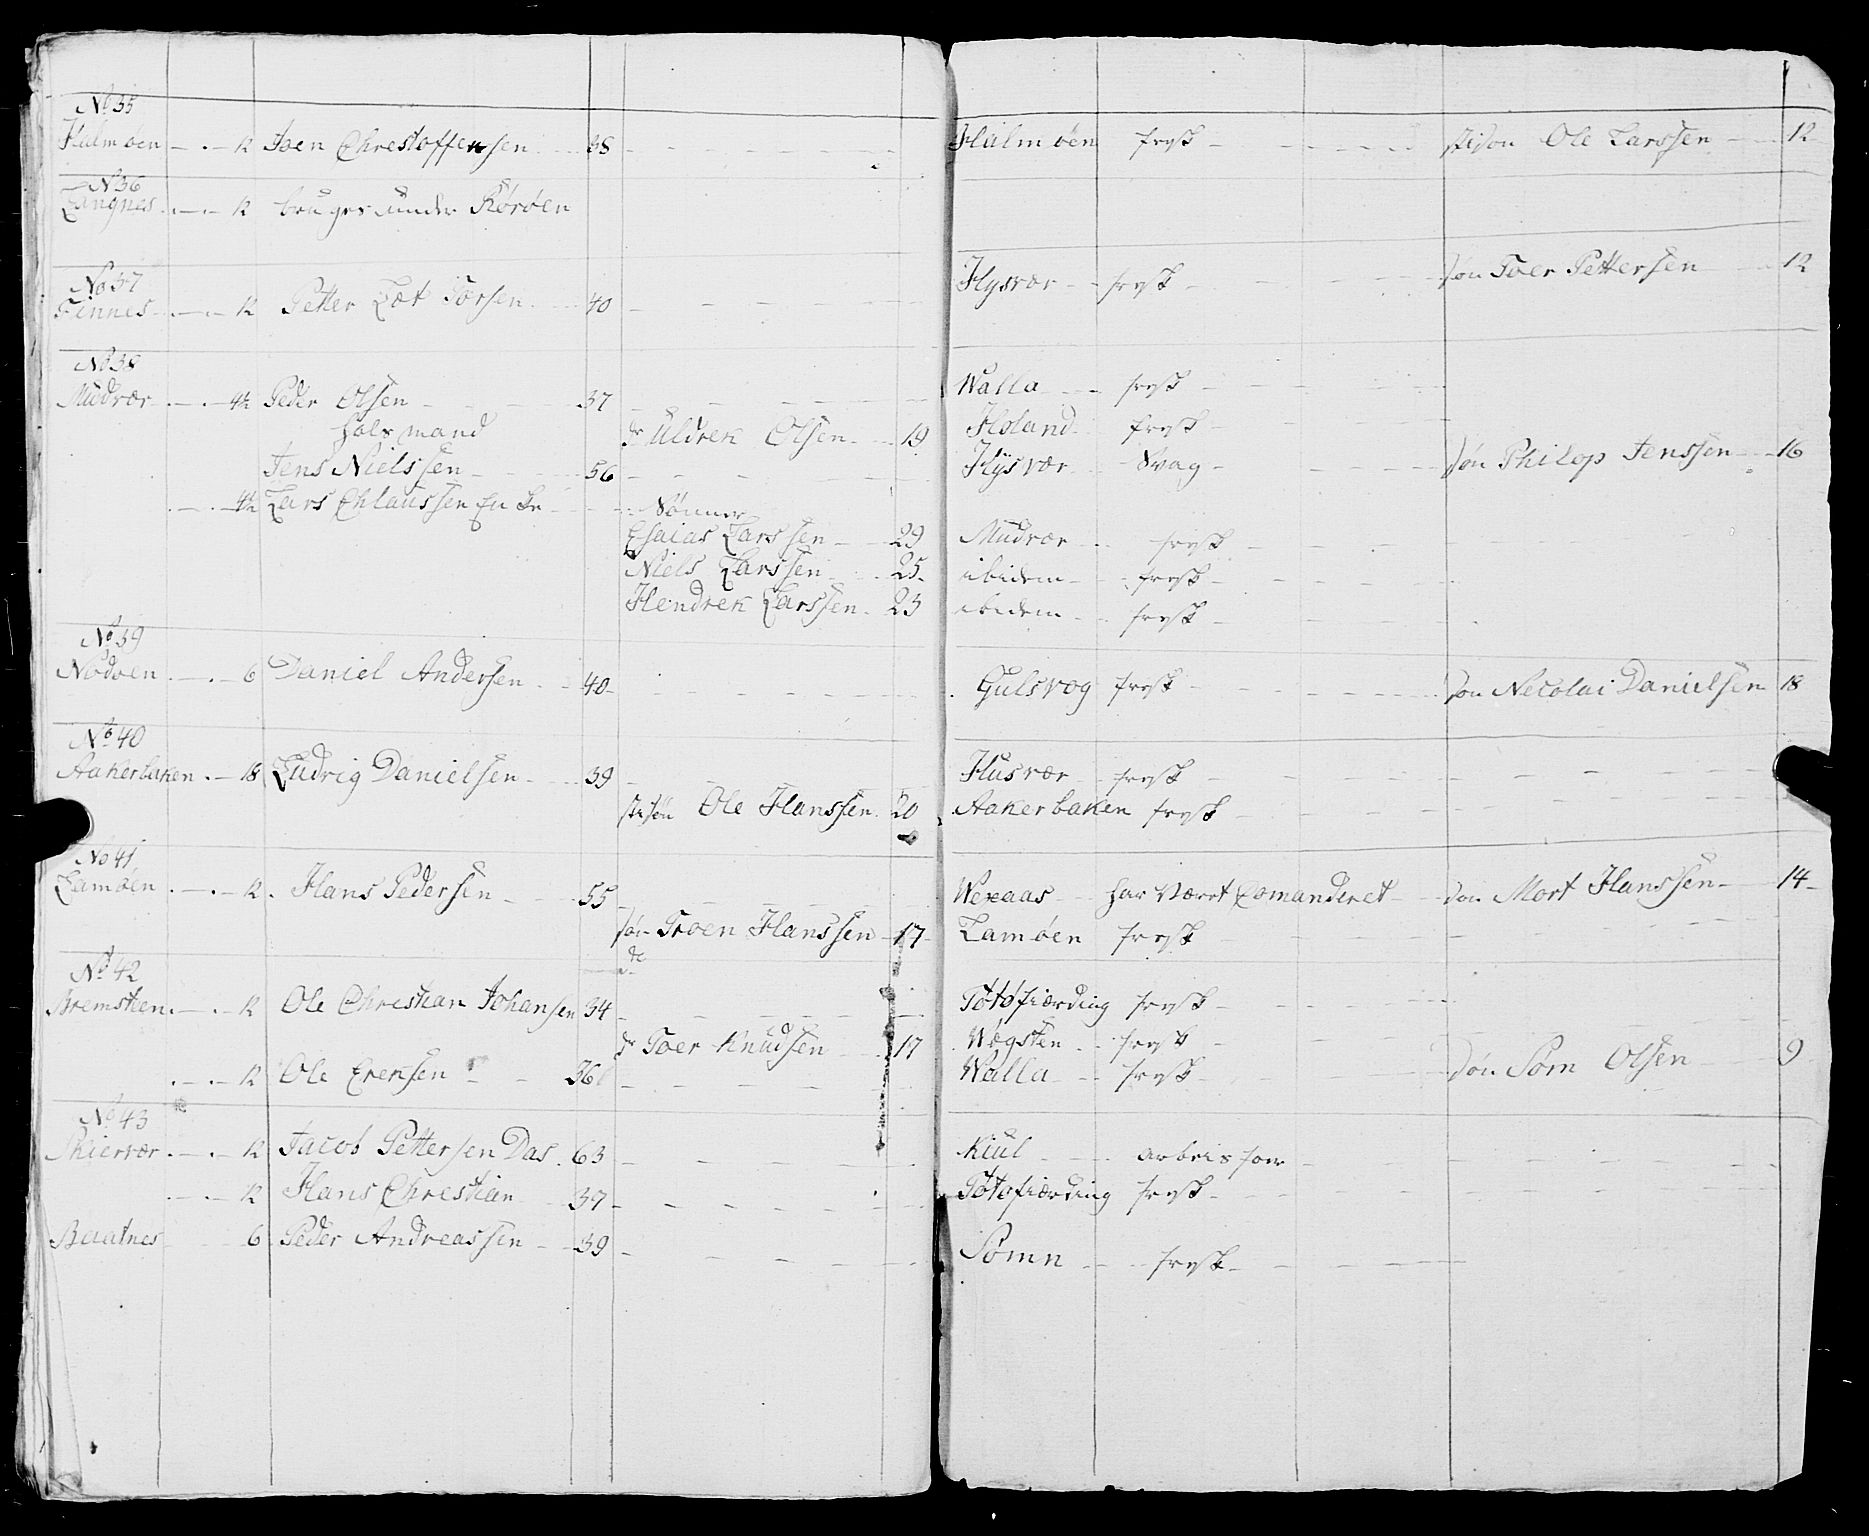 No 35
Halmøen 12 Joen Chrestoffersen 38 Halmøen frysk stisøn Ole Larssen 12
No 36
Langnes 12 bruges under Rørøen
No 37
Finnes 12 Petter Torsen 40 Hysvær frysk søn Toer Pettersen 12
No 38
Mudvær 4½ Peder Olsen 37 Walla frysk
Huusmand dr Uldrek Olsen 19 Holand frysk
Jens Nielssen 56 Hysvær Svag søn Philop Jenssen 16
4½ Lars Chlaussen Enke Sønner
Esaias Larssen 29 Mudvær frysk
Niels Larssen 25 ibidem frysk
Hendrek Larssen 23 ibidem frysk
No 39
Nødøen 6 Daniel Andersen 40 Gulsvog frysk søn Necolai Danielsen 18
No 40
Aakerbaken 18 Ludvig Danielsen 39 Husvær frysk
stisøn Ole Hanssen 20 Aakerbaken frysk
No 41
Lamøen 12 Hans Pedersen 55 Wexaas har Været Comanderet søn Mort Hanssen 14
søn Troen Hanssen 17 Lamøen frysk
No 42
Bremsteen 12 Ole Chrestian Johansen 34 Tøtøfiærding frysk
dr Toer Knudsen 17 Wegsten frysk
12 Ole Ereksen 36 Walla frysk søn Sørn Olsen 9
No 43
Skiervær 12 Jacob Pettersen Das 63 Kiul
12 Hans Chrestian 37 Tøtøfiærding frysk
Baatnes 6 Peder Andreassen 39 Sømn frysk